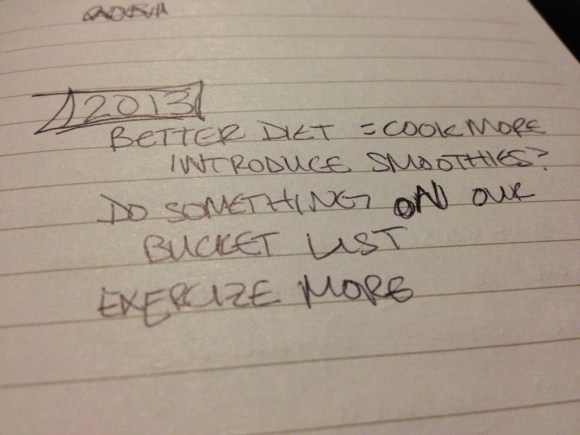 2013
BETTER DIET = COOK MORE
INTRODUCE SMOOTHIES?
DO SOMETHING ON OUR
BUCKET LIST
EXERCIZE MORE